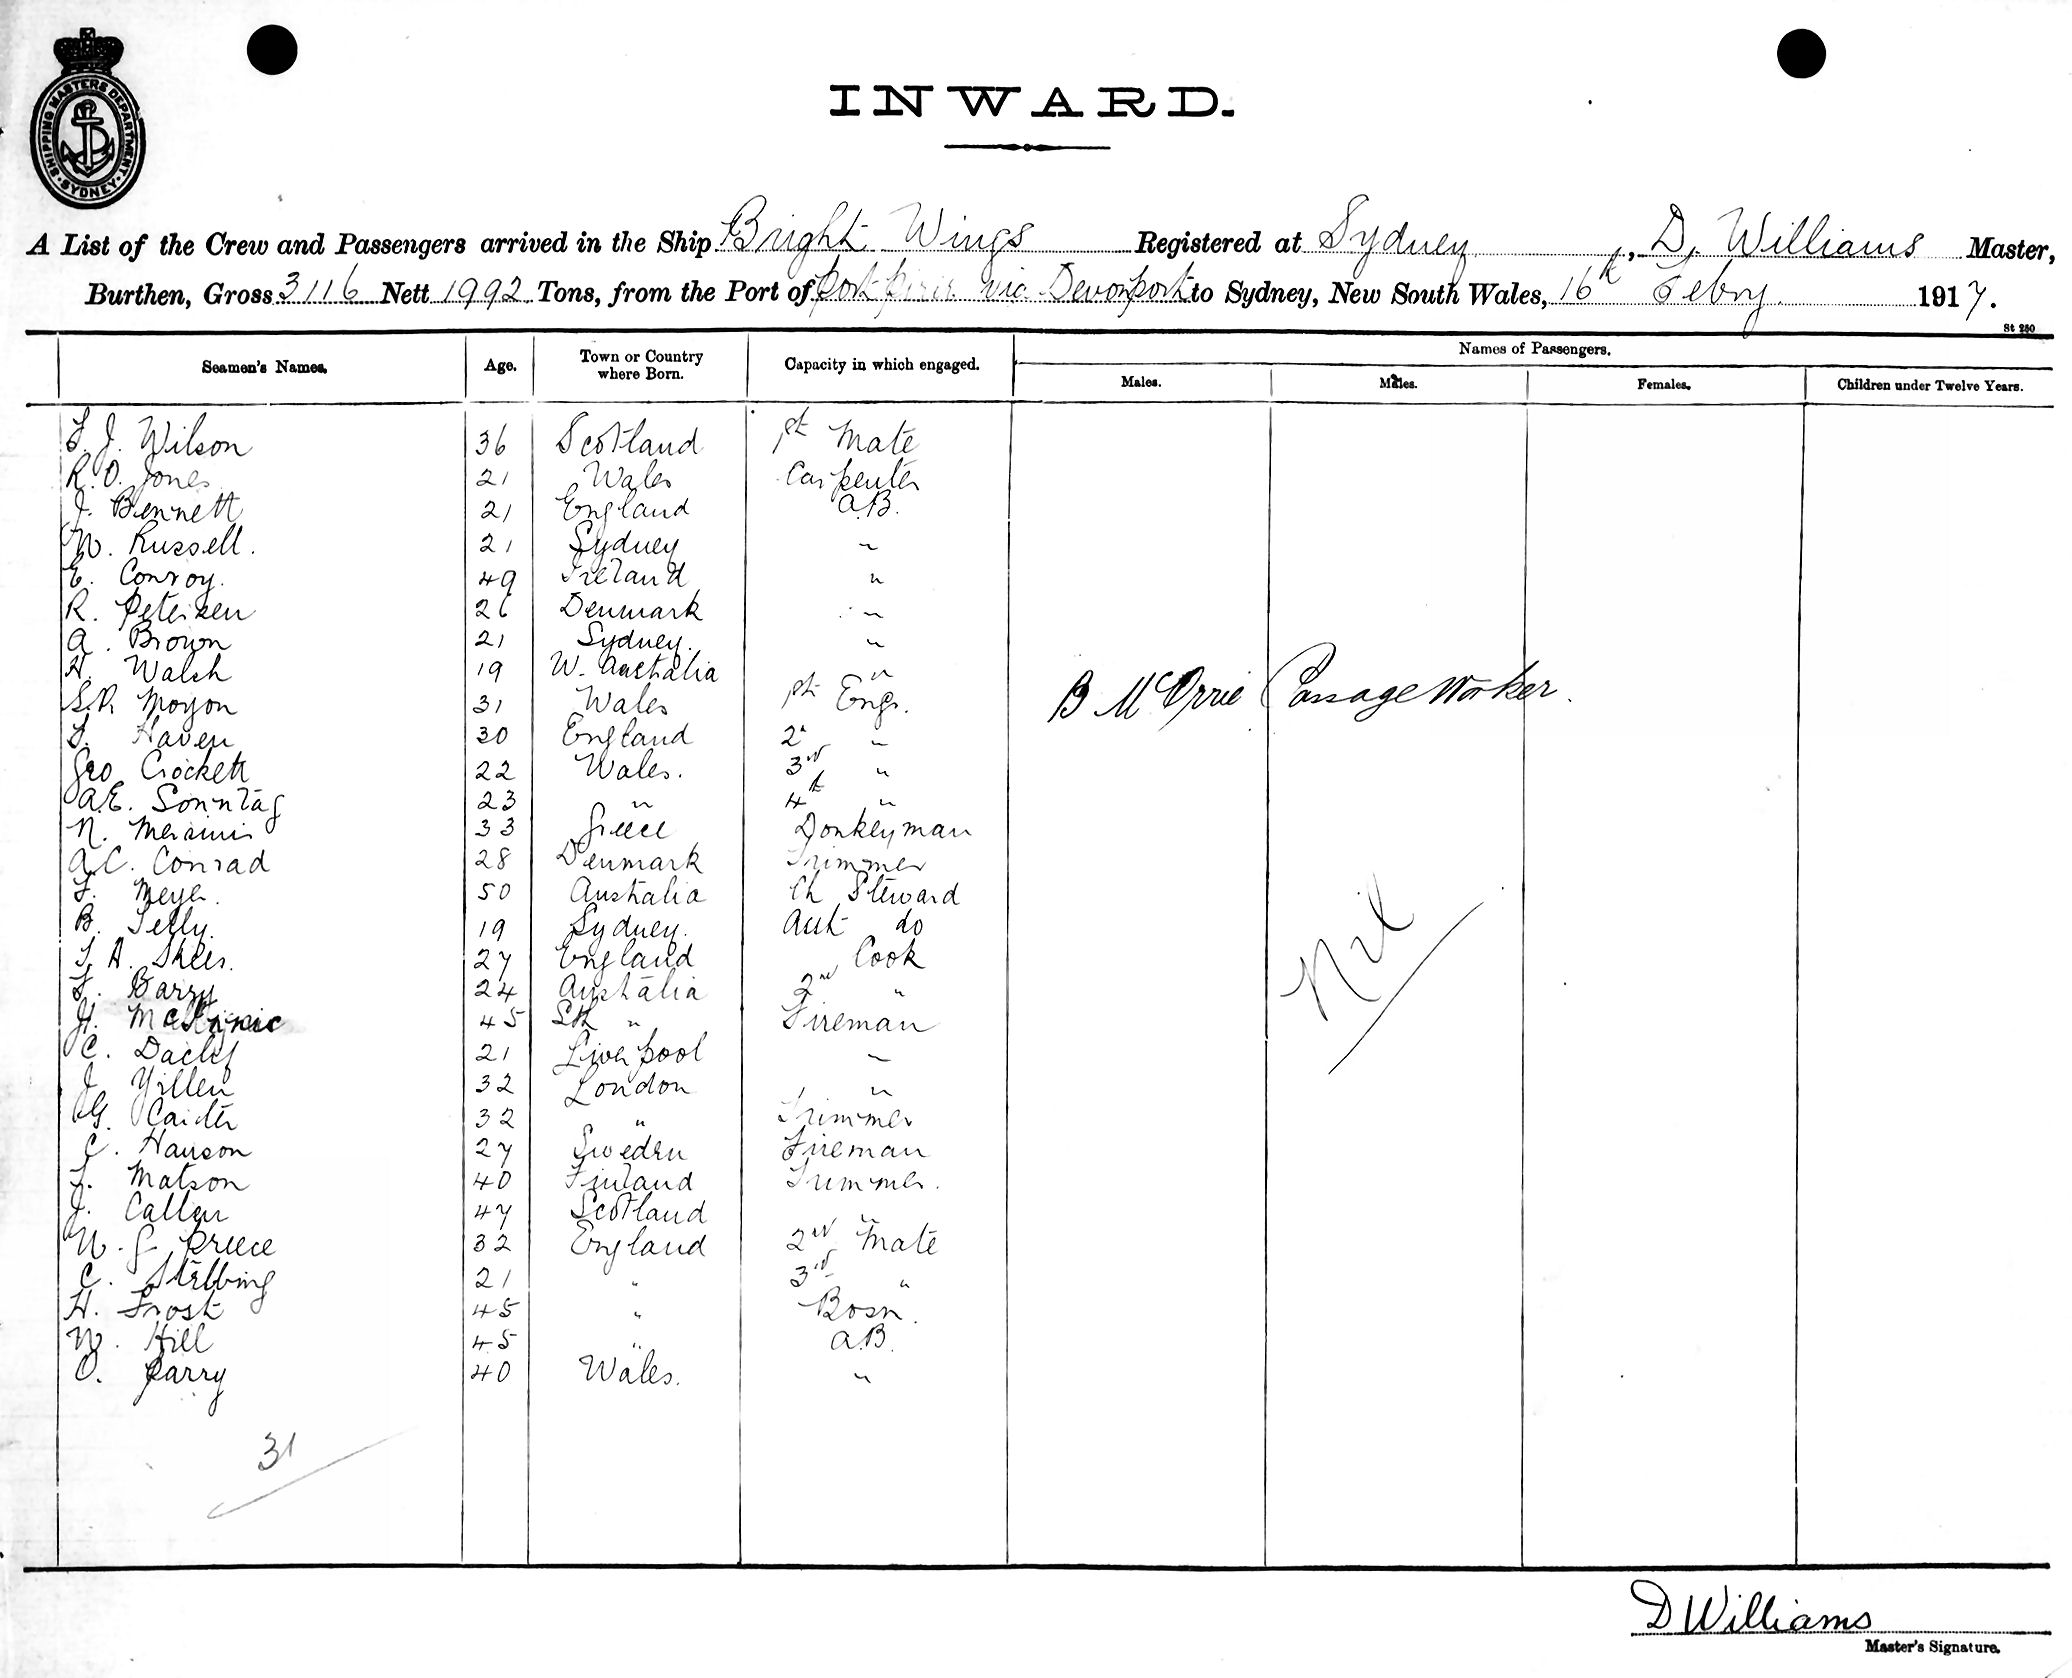 SHIPPING MASTERS DEPARTMENT SYDNEY
INWARD.
A List of the Crew and Passengers arrived in the Ship Bright Wings Registered at Sydney, D. Williams Master,
Burthen, Gross 3116 Nett 1992 Tons, from the Port of Port Pirie via Devonport to Sydney, New South Wales, 16th Febry. 1917.
St 250
Seamen's Names. Age. Town or Country where Born. Capacity in which engaged. Names of Passengers.
Males. Males. Females. Children under Twelve Years.
J. Wilson 36 Scotland 1st Mate
R. O. Jones 21 Wales Carpenter
J. Bennett 21 England A.B.
W. Russell. 21 Sydney "
E. Conroy. 49 Ireland "
R. Petersen 26 Denmark "
A. Brown 21 Sydney. "
H. Walsh 19 W. Australia "
31 Wales 1st Engr.
B McOrrie Passage Worker.
Haven 30 England 2d "
Geo Crockett 22 Wales. 3rd "
A.E. Sonntag 23 " 4th "
N. 33 Greece Donkeyman
A.C. Conrad 28 Denmark Trimmer
F. Meyer. 50 Australia Ch Steward
B. 19 Sydney. do
27 England Cook
F. Barry 24 Australia 2nd "
H. 45 Sth " Fireman
C. 21 Liverpool "
J. 32 London "
G. Carter 32 " Trimmer
C. Hanson 27 Sweden Fireman
Matson 40 Finland Trimmer.
J. Callen 47 Scotland "
W. G. Preece 32 England 2nd Mate
C. Stebbing 21 " 3rd "
H. Frost 45 " Bosn.
W. Hill 45 " A.B.
O. Parry 40 Wales. "
Nil
31
D Williams
Master's Signature.